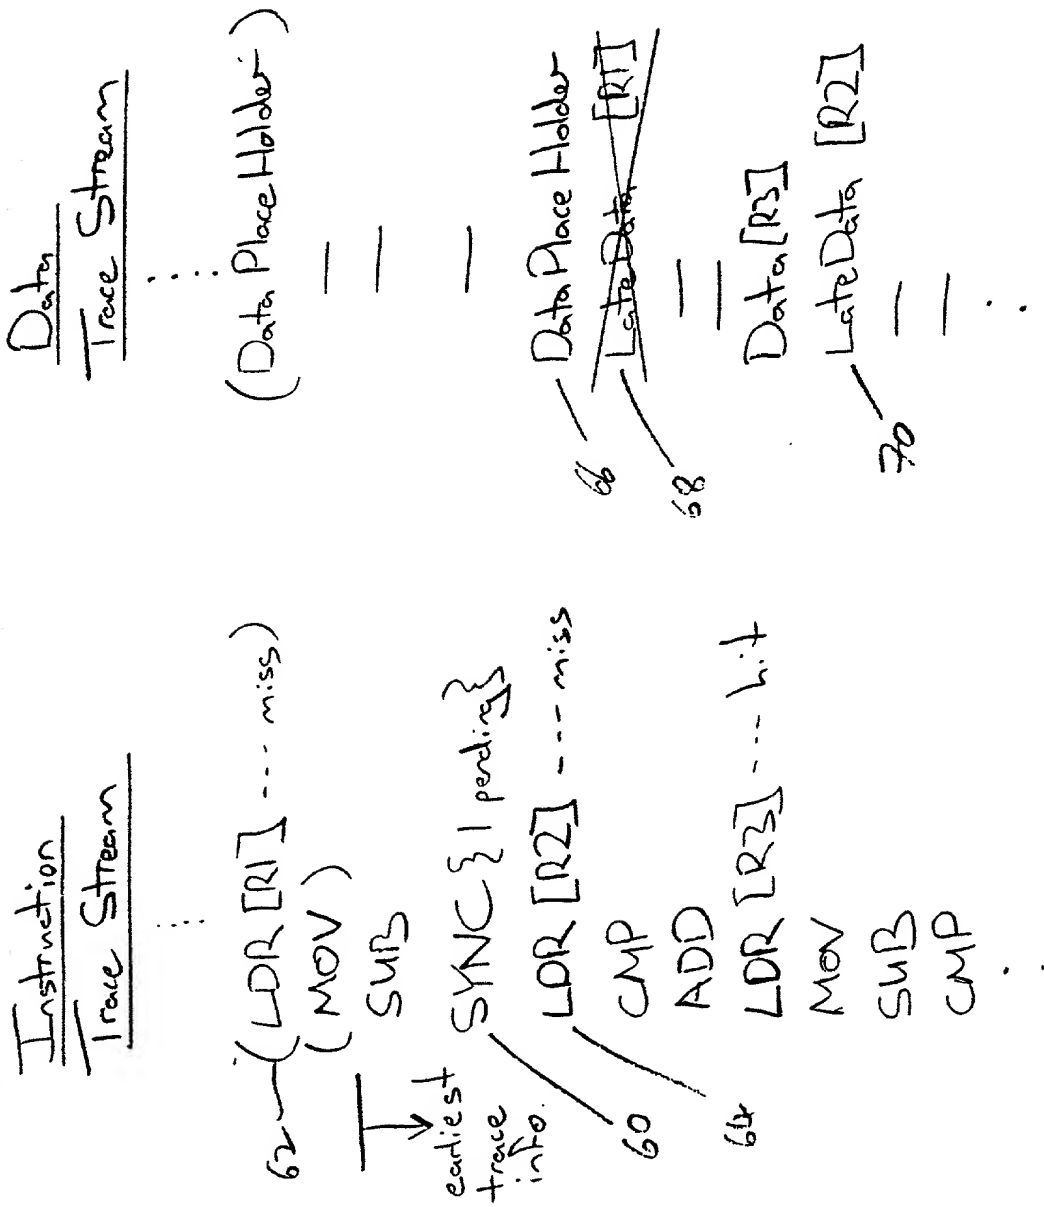 Instruction
Trace Stream
.....
62
(LDR [R1] ---- miss)
(MOV )
SUB
earliest
trace
info.
SYNC {1 pending}
60
LDR [R2] ---- miss
64
CMP
ADD
LDR [R3] ---- hit
MOV
SUB
CMP
Data
Trace Stream
.....
(Data PlaceHolder)
Data PlaceHolder
66
LateData [R1]
68
Data [R3]
LateData [R2]
70